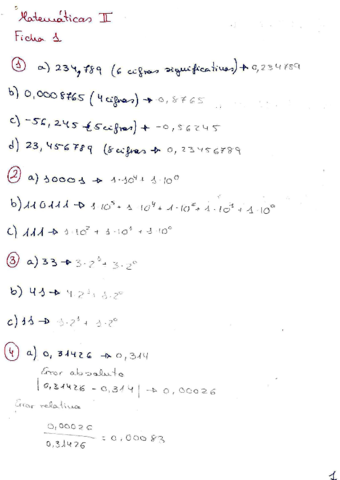 Matemáticas II
Ficha 1
① a) 234,789 (6 cifras significativas) → 0,234789
b) 0,0008765 (4 cifras) → 0,8765
c) -56,245 (5 cifras) → -0,56245
d) 23,456789 (8 cifras → 0,23456789
② a) 10001 → 1·10⁴ + 1·10⁰
b) 110111 → 1·10⁵ + 1·10⁴ + 1·10² + 1·10¹ + 1·10⁰
c) 111 → 1·10² + 1·10¹ + 1·10⁰
③ a) 33 → 3·2¹ + 3·2⁰
b) 41 → 4·2¹ + 1·2⁰
c) 11 → 1·2¹ + 1·2⁰
④ a) 0,31426 → 0,314
Error absoluto
|0,31426 - 0,314| → 0,00026
Error relativo
0,00026
0,31426 = 0,00083
1